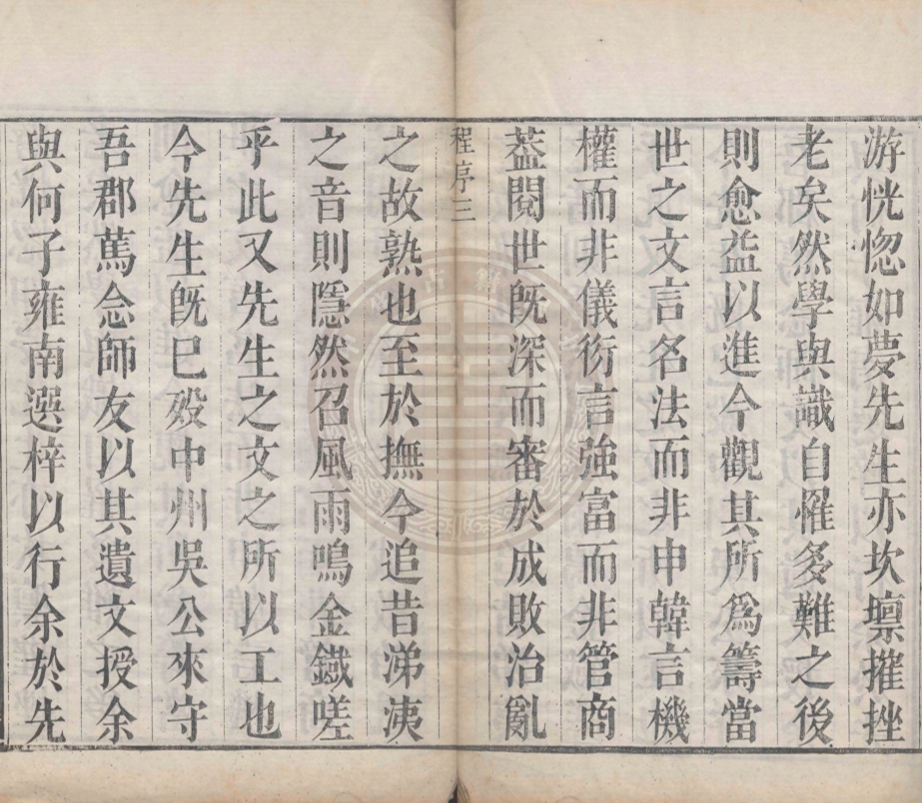 游恍惚如夢先生亦坎壈摧挫
老矣然學與識自懼多難之後
則愈益以進今觀其所爲籌當
世之文言名法而非申韓言機
權而非儀衍言強富而非管商
葢閱世旣深而審於成敗治亂
程序三
之故熟也至於撫今追昔涕洟
之音則隱然召風雨鳴金鐵嗟
乎此又先生之文之所以工也
今先生旣已歿中州吳公來守
吾郡篤念師友以其遺文授余
與何子雍南選梓以行余於先